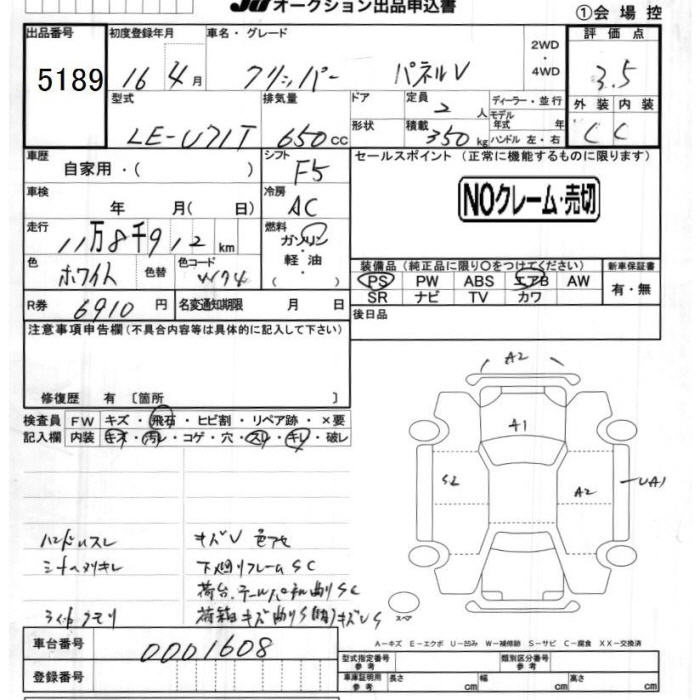 オークション出品申込書
①会場控
出品番号 初度登録年月 車名・グレード 評価点
5189 16年4月 クリッパー パネルV 2WD ・ 4WD 3.5
型式 排気量 ドア 定員 2人 ディーラー・並行 外装 内装
LE-U71T 650cc 形状 積載 350kg モデル年式 年 ハンドル 左・右 C C
車歴 自家用・( ) シフト F5 セールスポイント (正常に機能するものに限ります)
車検 年 月( 日) 冷房 AC NOクレーム・売切
走行 11万8千912km 燃料 ガソリン・軽油
色 ホワイト 色替 色コード W74
装備品 (純正品に限り○をつけてください) 新車保証書
PS PW ABS エアB AW 有・無
SR ナビ TV カワ
R券 6910円 名変通知期限 月 日 後日品
注意事項申告欄(不具合内容等は具体的に記入して下さい)
修復歴 有 〔箇所 〕
検査員 FW キズ・飛石・ヒビ割・リペア跡・×要
記入欄 内装 キズ・汚レ・コゲ・穴・スレ・キレ・破レ
A2
A1
S2
A2
UA1
ハンドルスレ キズV 色アセ
シートヘタリキレ 下廻りフレームSC
荷台、テールパネル曲りSC
ライトクモリ
スペア
車台番号 0001608
A-キズ E-エクボ U-凹み W-補修跡 S-サビ C-腐食 XX-交換済
登録番号
型式指定番号 参考 類別区分番号 参考
車庫証明用 参考 長さ cm 幅 cm 高さ cm